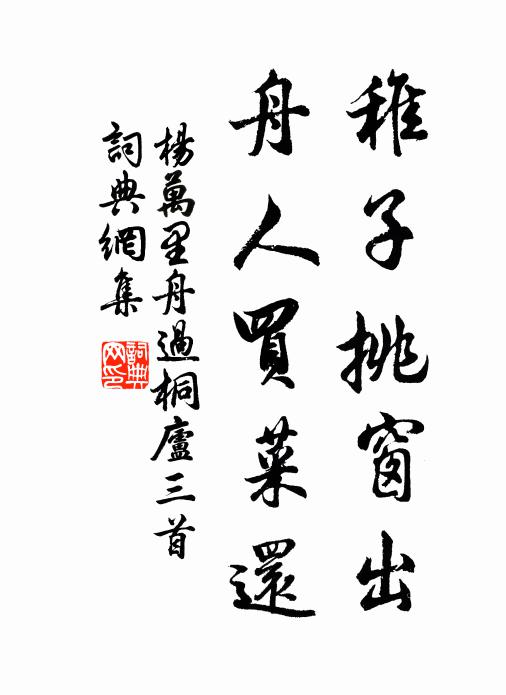 稚子挑窗出
舟人買菜還
楊萬里舟過桐廬三首
詞典網集
詞典網印